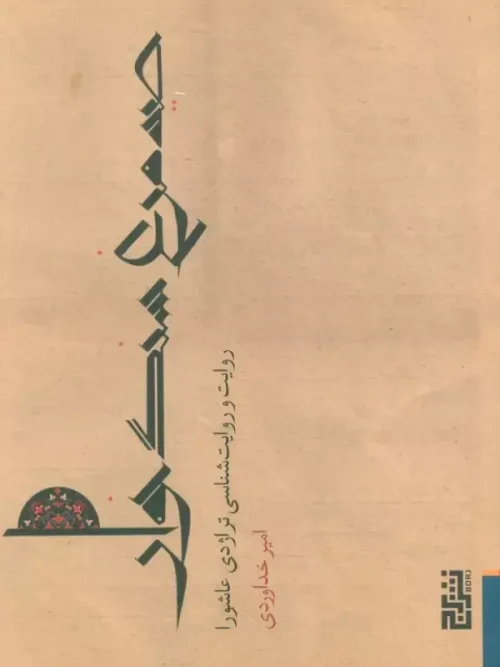 سنگ‌خوار
روایت و روایت‌شناسی تراژدی عاشورا
امیر خداوردی
نشر برج
BORJ